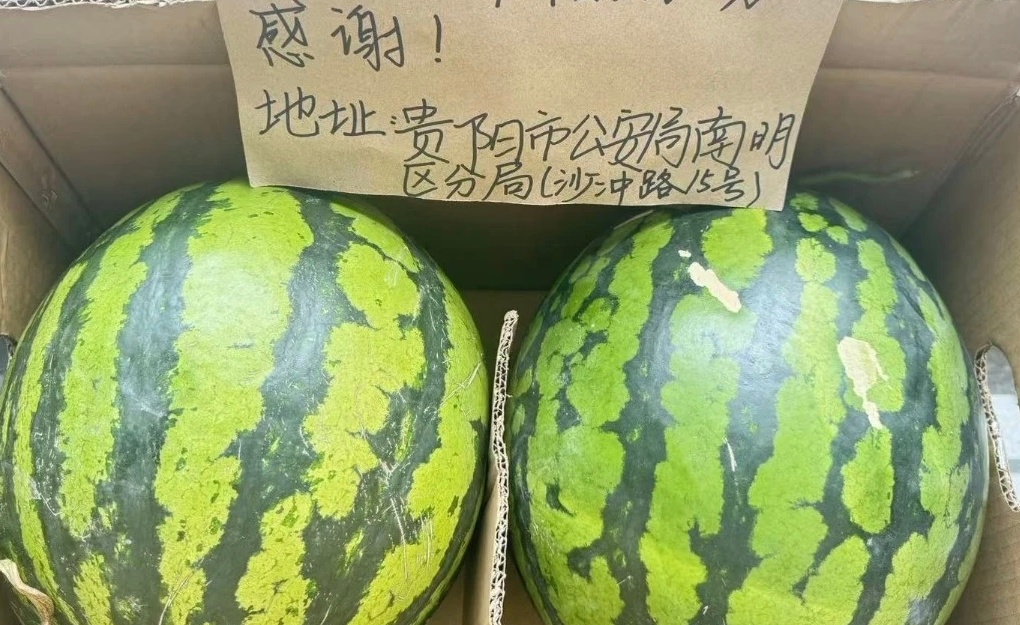 感谢！
地址：贵阳市公安局南明
区分局（沙冲路15号）